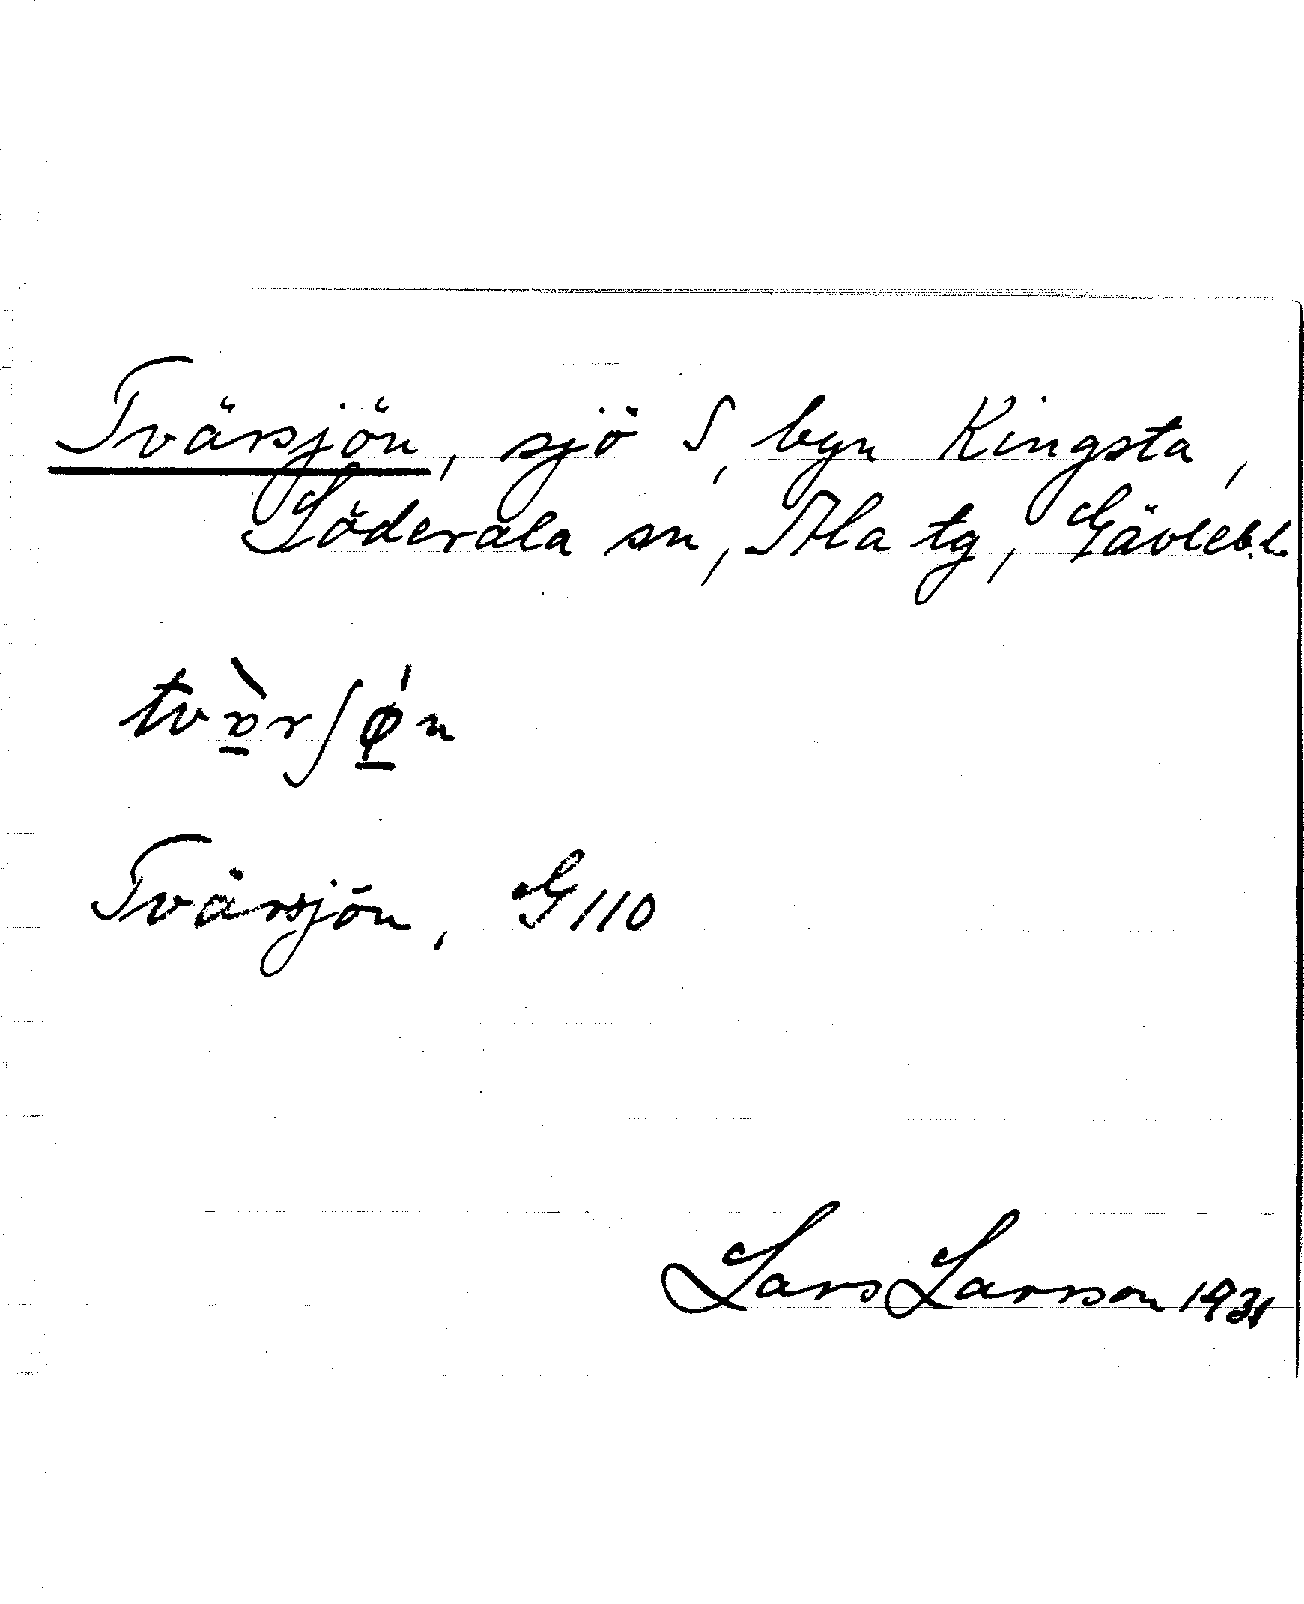 Tvärsjön, sjö S, byn Kingsta,
Söderala sn, Ala tg, Gävlebl.
Tvärsjön, G110
Lars Larsson 1931